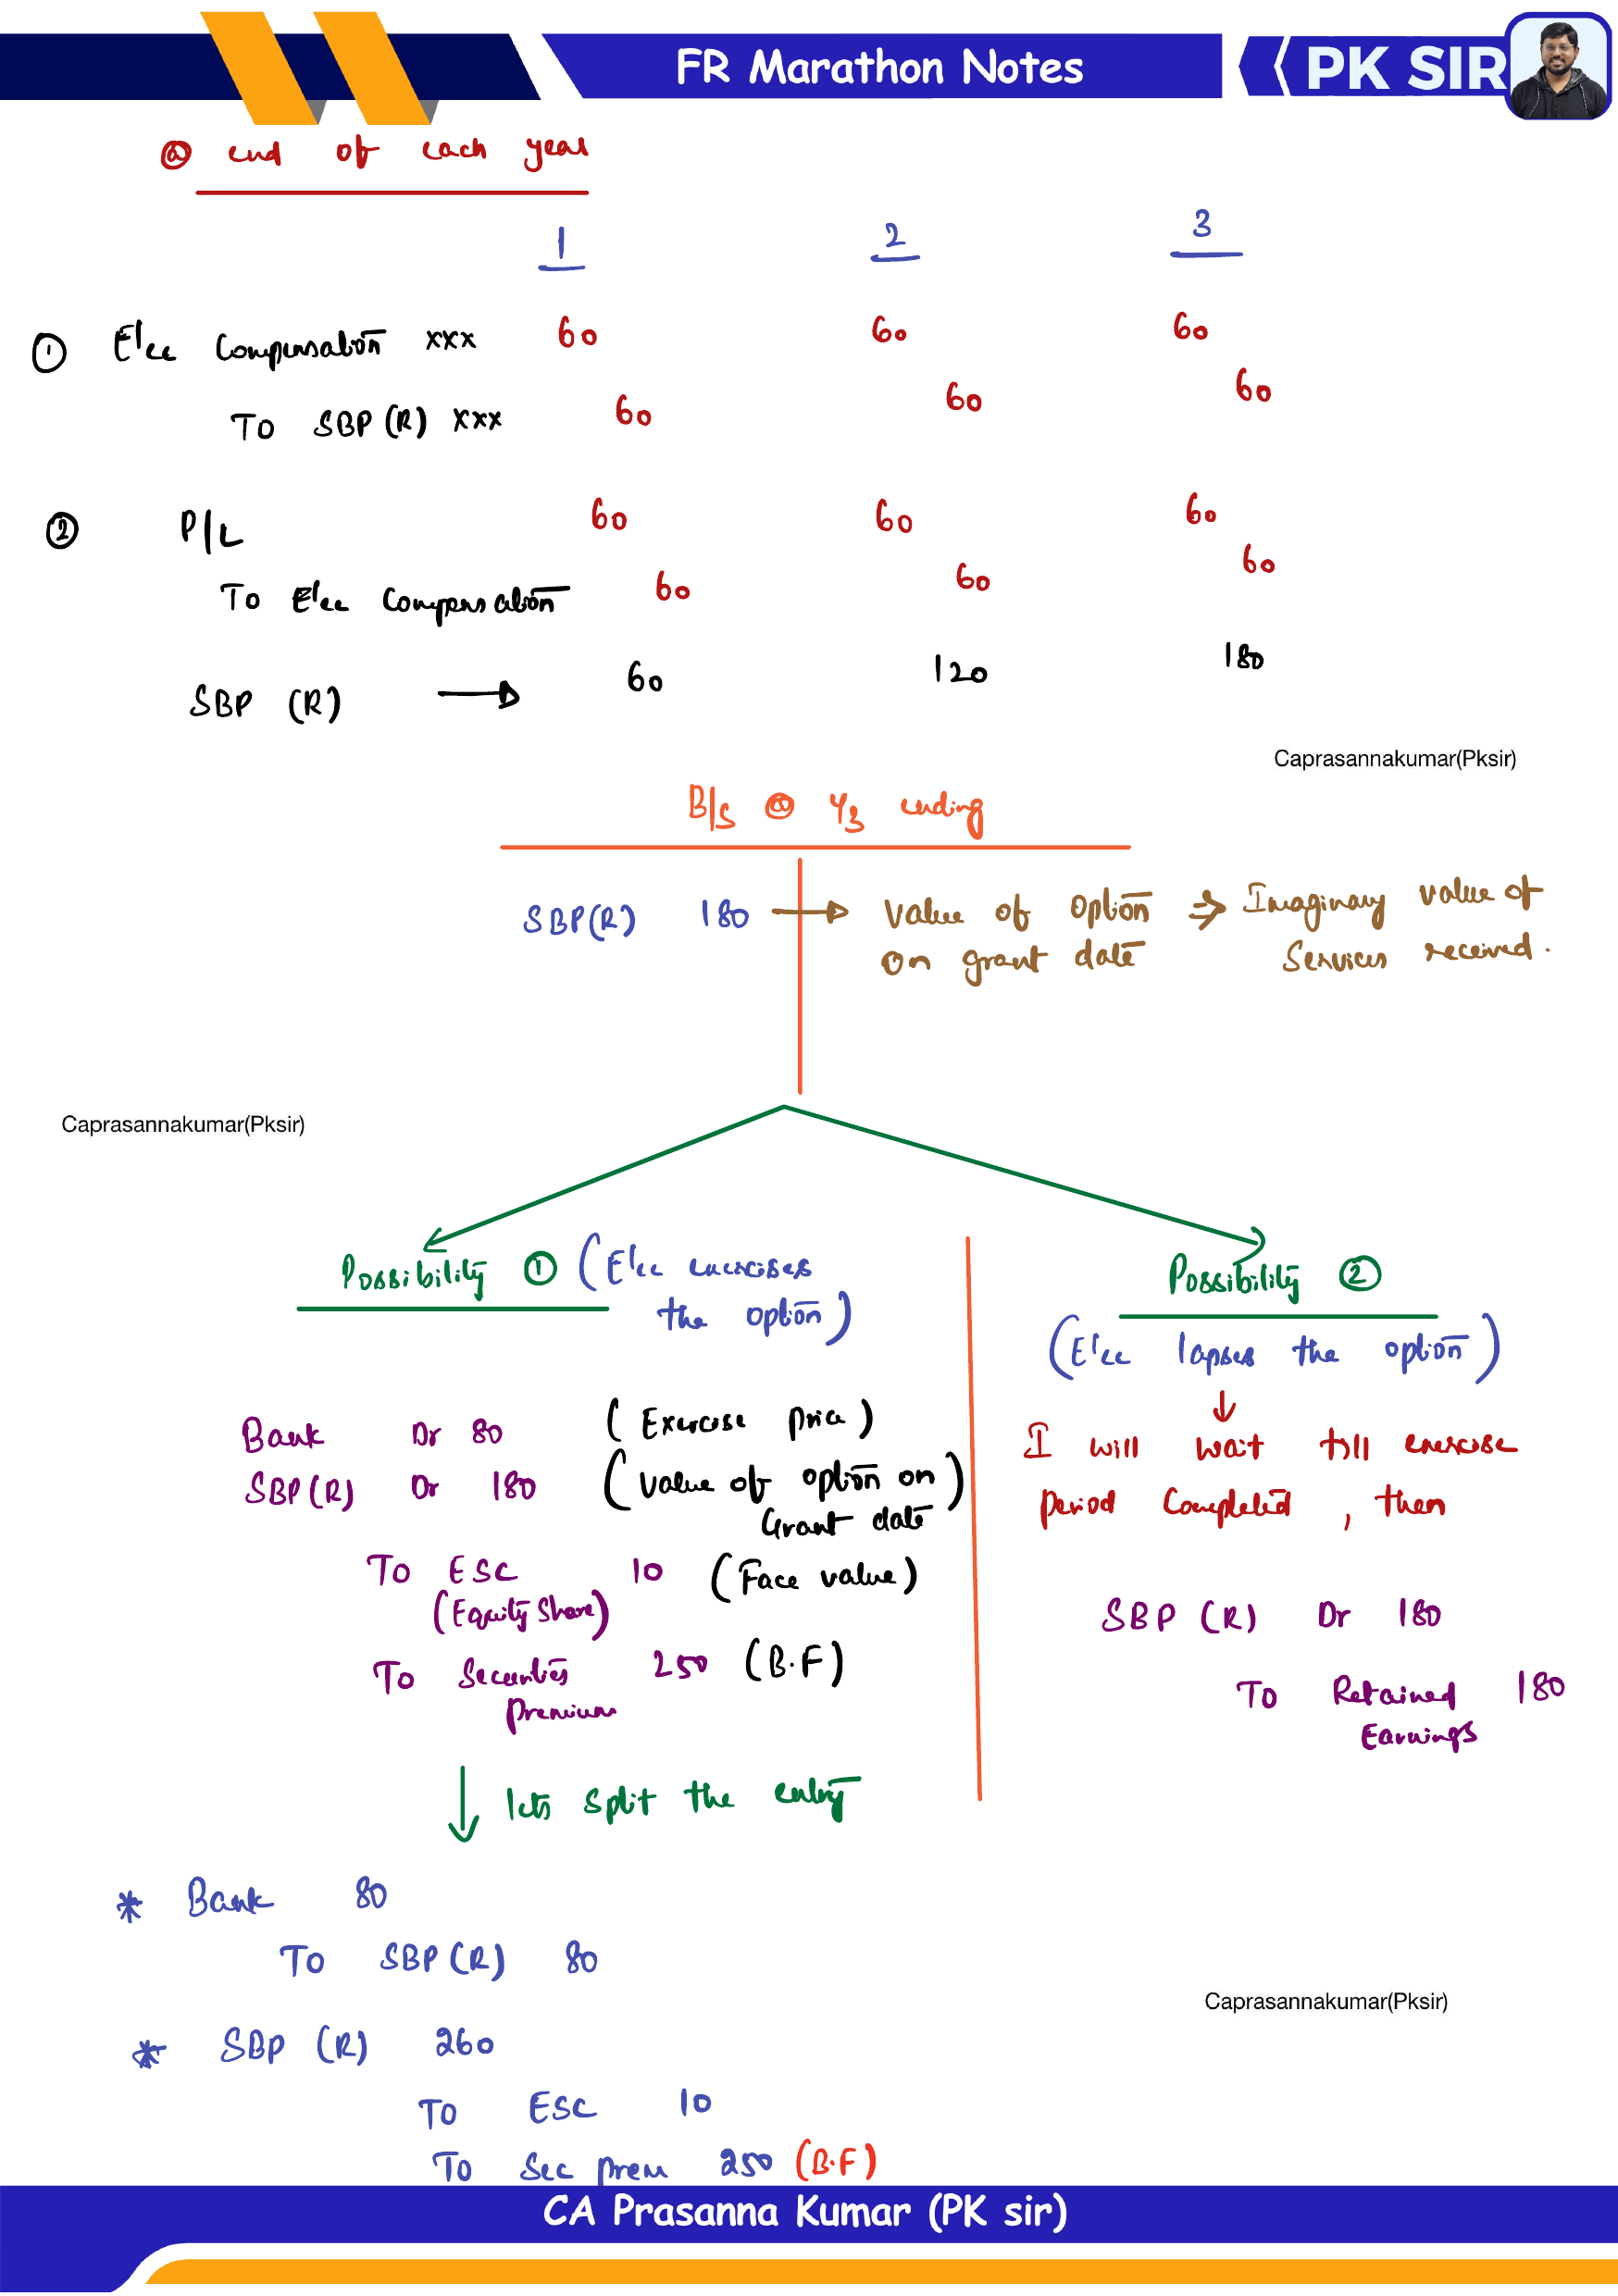 FR Marathon Notes
PK SIR
@ end of each year
1 2 3
① E'ee Compensation xxx 60 60 60
To SBP (R) xxx 60 60 60
② P/L 60 60 60
To E'ee Compensation 60 60 60
SBP (R) → 60 120 180
Caprasannakumar(Pksir)
B/S @ Y3 ending
SBP(R) 180 → Value of option ⇒ Imaginary value of
on grant date Services received.
Caprasannakumar(Pksir)
Possibility ① (E'ee exercises
the option)
Bank Dr 80 (Exercise price)
SBP(R) Dr 180 (Value of option on
Grant date)
To ESC 10 (Face value)
(Equity Share)
To Securities 250 (B.F)
Premium
↓ lets split the entry
Possibility ②
(E'ee lapses the option)
↓
I will wait till exercise
period Completed, then
SBP (R) Dr 180
To Retained 180
Earnings
* Bank 80
To SBP(R) 80
Caprasannakumar(Pksir)
* SBP (R) 260
To ESC 10
To Sec prem 250 (B.F)
CA Prasanna Kumar (PK sir)